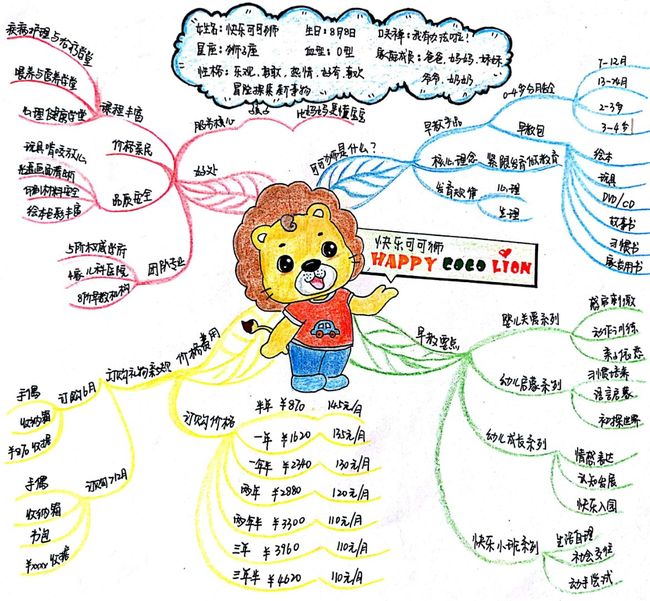 姓名:快乐可可狮
生日:8月8日
口头禅:我有办法啦!
星座:狮子座
血型:O型
家庭成员:爸爸、妈妈、妹妹、爷爷、奶奶
性格:乐观、自信、热情、好奇、喜欢
冒险探索新事物
可可狮是什么?
早教产品
0-4岁分月龄
7-12月
13-24月
2-3岁
3-4岁
早教包
绘本
玩具
DVD/CD
故事书
习惯书
家长用书
核心理念
紧跟发育做教育
发育规律
心理
生理
好处
服务核心
比妈妈更懂宝宝
课程丰富
疾病护理与预防课堂
喂养与营养课堂
心理健康课堂
价格亲民
品质安全
玩具啃咬放心
印刷材料安全
绘本色彩丰富
团队专业
儿科医院
早教机构
快乐可可狮
HAPPY COCO LION
价格费用
订购礼物
订购6月
手偶
收纳箱
订购12月
手偶
收纳箱
书包
¥xxx 收据
订购价格
半年 ¥870 145元/月
一年 ¥1620 135元/月
一年半 ¥2340 130元/月
两年 ¥2880 120元/月
两年半 ¥3300 110元/月
三年 ¥3960 110元/月
三年半 ¥4620 110元/月
早教重点
婴儿关爱系列
感官刺激
动作训练
亲子依恋
幼儿启蒙系列
习惯培养
语言启蒙
初探世界
幼儿成长系列
情感表达
认知发展
快乐入园
快乐小班系列
生活自理
社会交往
动手尝试